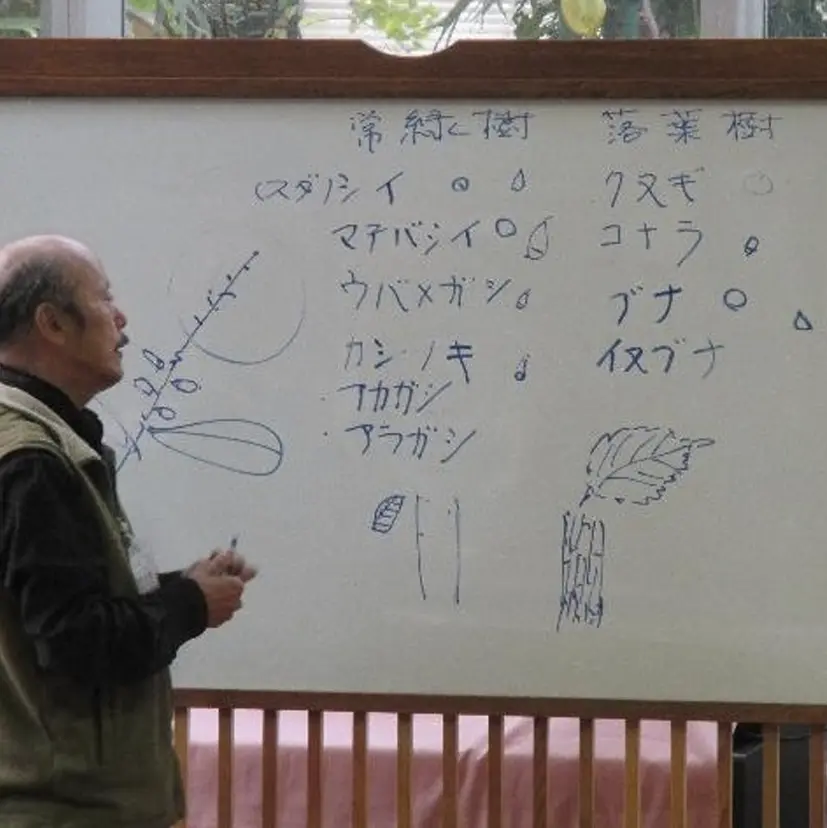 常緑樹
(スダ)シイ
マテバシイ
ウバメガシ
カシノキ
・アカガシ
・アラガシ
落葉樹
クヌギ
コナラ
ブナ
イヌブナ